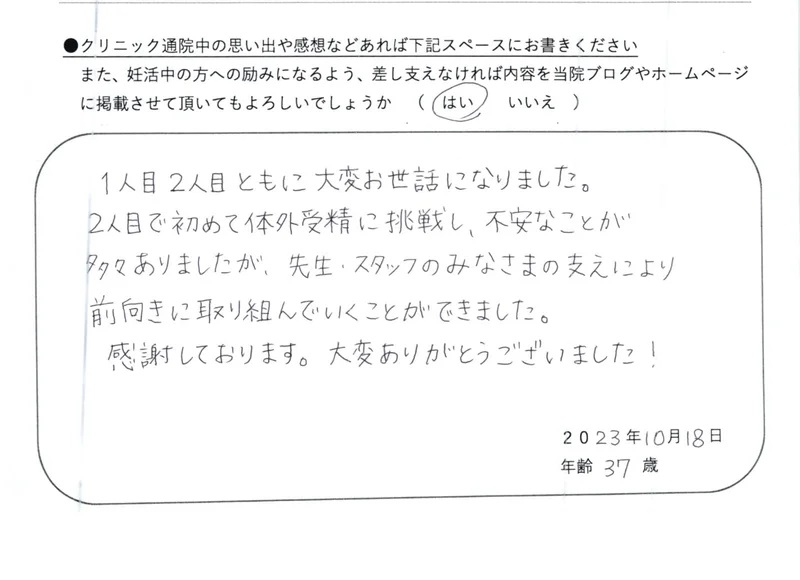 ●クリニック通院中の思い出や感想などあれば下記スペースにお書きください
また、妊活中の方への励みになるよう、差し支えなければ内容を当院ブログやホームページ
に掲載させて頂いてもよろしいでしょうか （ はい　いいえ ）
1人目2人目ともに大変お世話になりました。
2人目で初めて体外受精に挑戦し、不安なことが
多々ありましたが、先生・スタッフのみなさまの支えにより
前向きに取り組んでいくことができました。
感謝しております。大変ありがとうございました！
2023年10月18日
年齢 37 歳